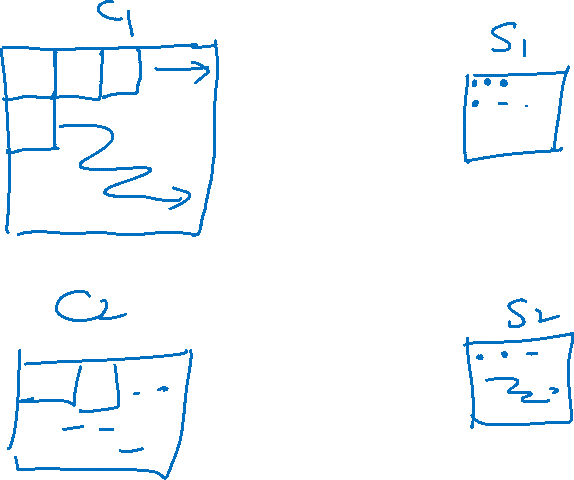 C1
S1
C2
S2